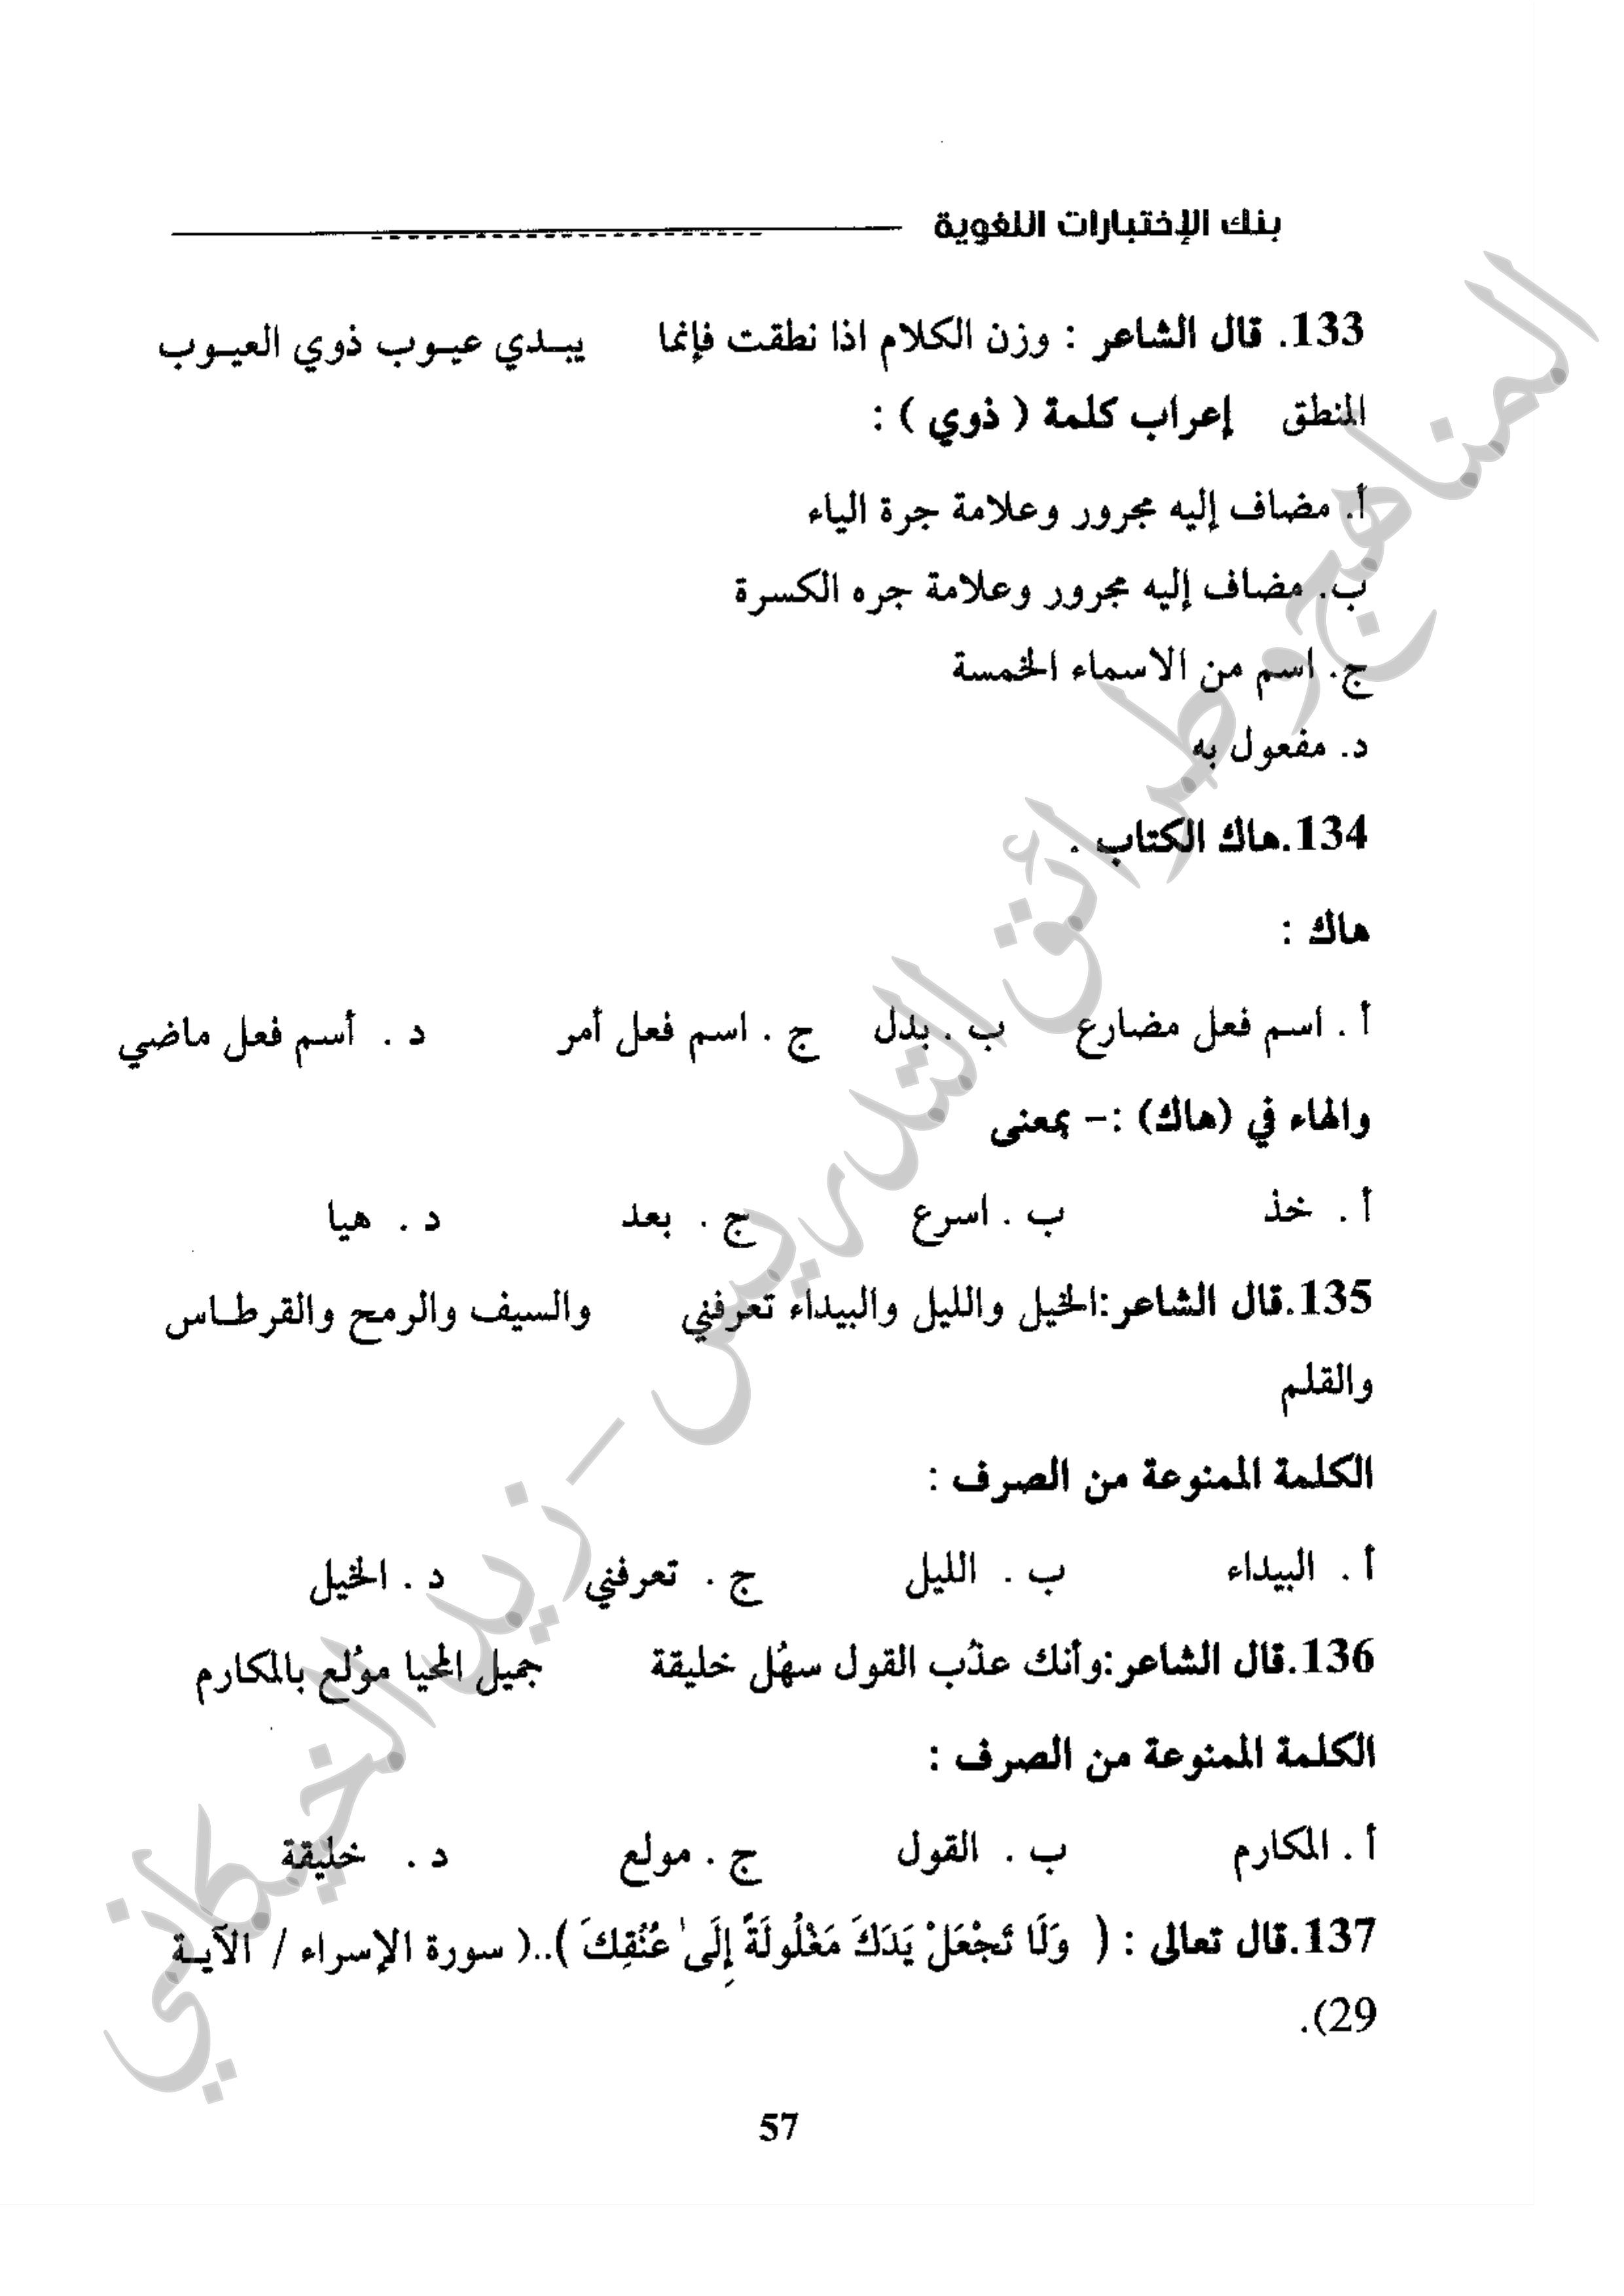 بنك الإختبارات اللغوية
133. قال الشاعر : وزن الكلام اذا نطقت فإنما يبـدي عيـوب ذوي العيـوب
المنطق إعراب كلمة ( ذوي ) :
أ. مضاف إليه مجرور وعلامة جرة الياء
ب. مضاف إليه مجرور وعلامة جره الكسرة
ج. اسم من الاسماء الخمسة
د. مفعول به
134.هاك الكتاب .
هاك :
أ . اسم فعل مضارع ب . بدل ج . اسم فعل أمر د . أسم فعل ماضي
والهاء في (هاك) :– بمعنى
أ . خذ ب . اسرع ج . بعد د . هيا
135.قال الشاعر:الخيل والليل والبيداء تعرفني والسيف والرمح والقرطـاس
والقلم
الكلمة الممنوعة من الصرف :
أ . البيداء ب . الليل ج . تعرفني د . الخيل
136.قال الشاعر:وأنك عذُب القول سهُل خليقة جميل المحيا موُلع بالمكارم
الكلمة الممنوعة من الصرف :
أ . المكارم ب . القول ج . مولع د . خليقة
137.قال تعالى : ( وَلَا تَجْعَلْ يَدَكَ مَغْلُولَةً إِلَىٰ عُنُقِكَ )..( سورة الإسراء / الآيـة
29).
57
المناهج وطرائق التدريس – زيد الخيكاني